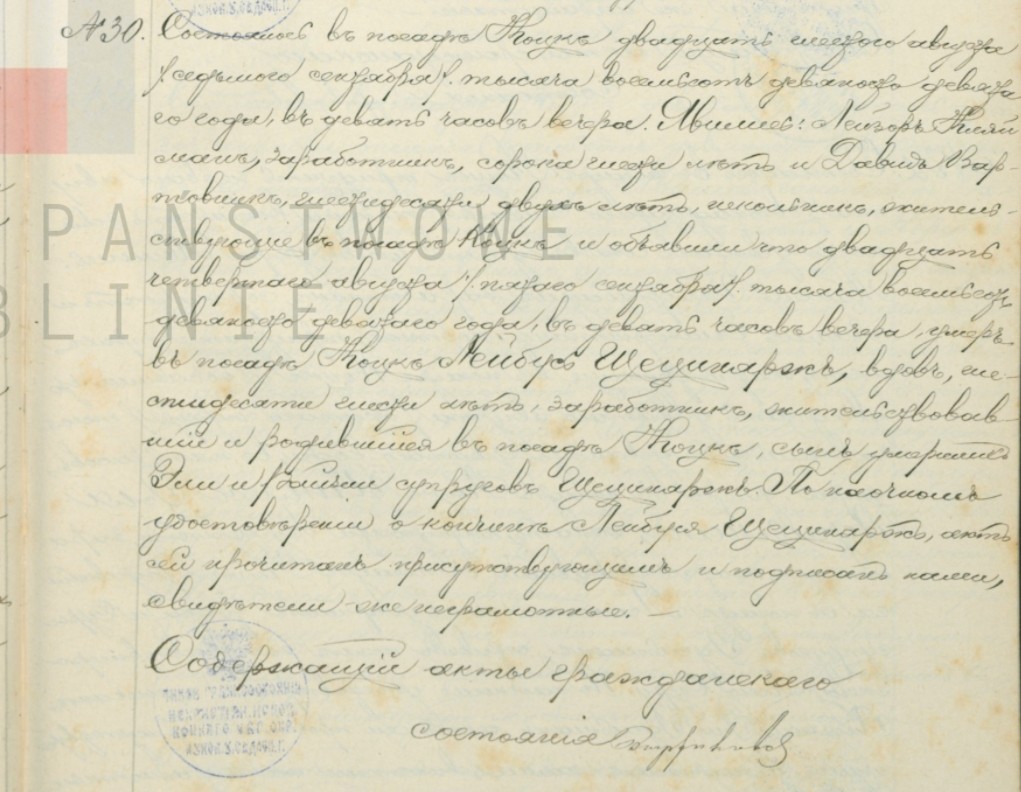 № 30. Состоялось въ посадѣ Коцкѣ двадцать шестого августа
/седьмого сентября/ тысяча восемьсотъ девяносто девята
го года, въ девять часовъ вечера. Явились: Лейзоръ Кляй
манъ, заработникъ, сорока шести лѣтъ и Давидъ Вар-
товникъ, шестидесяти двухъ лѣтъ, школьникъ, житель-
ствующіе въ посадѣ Коцкѣ и объявили что двадцать
четвертаго августа /пятаго сентября/ тысяча восемьсотъ
девяносто девятаго года, въ девять часовъ вечера, умеръ
въ посадѣ Коцкѣ Лейбусь Щецинаржъ, вдовъ, ше-
стидесяти шести лѣтъ, заработникъ, жительствовав-
шій и родившійся въ посадѣ Коцкѣ, сынъ умершихъ
Эли и супруговъ Щецинаржъ. По наочномъ
удостовѣреніи о кончинѣ Лейбуся Щецинаржъ, актъ
сей прочитанъ присутствующимъ и подписанъ нами,
свидѣтели же неграмотные. —
Содержащій акты гражданскаго
состоянія
PANSTWOWE
BLINIE